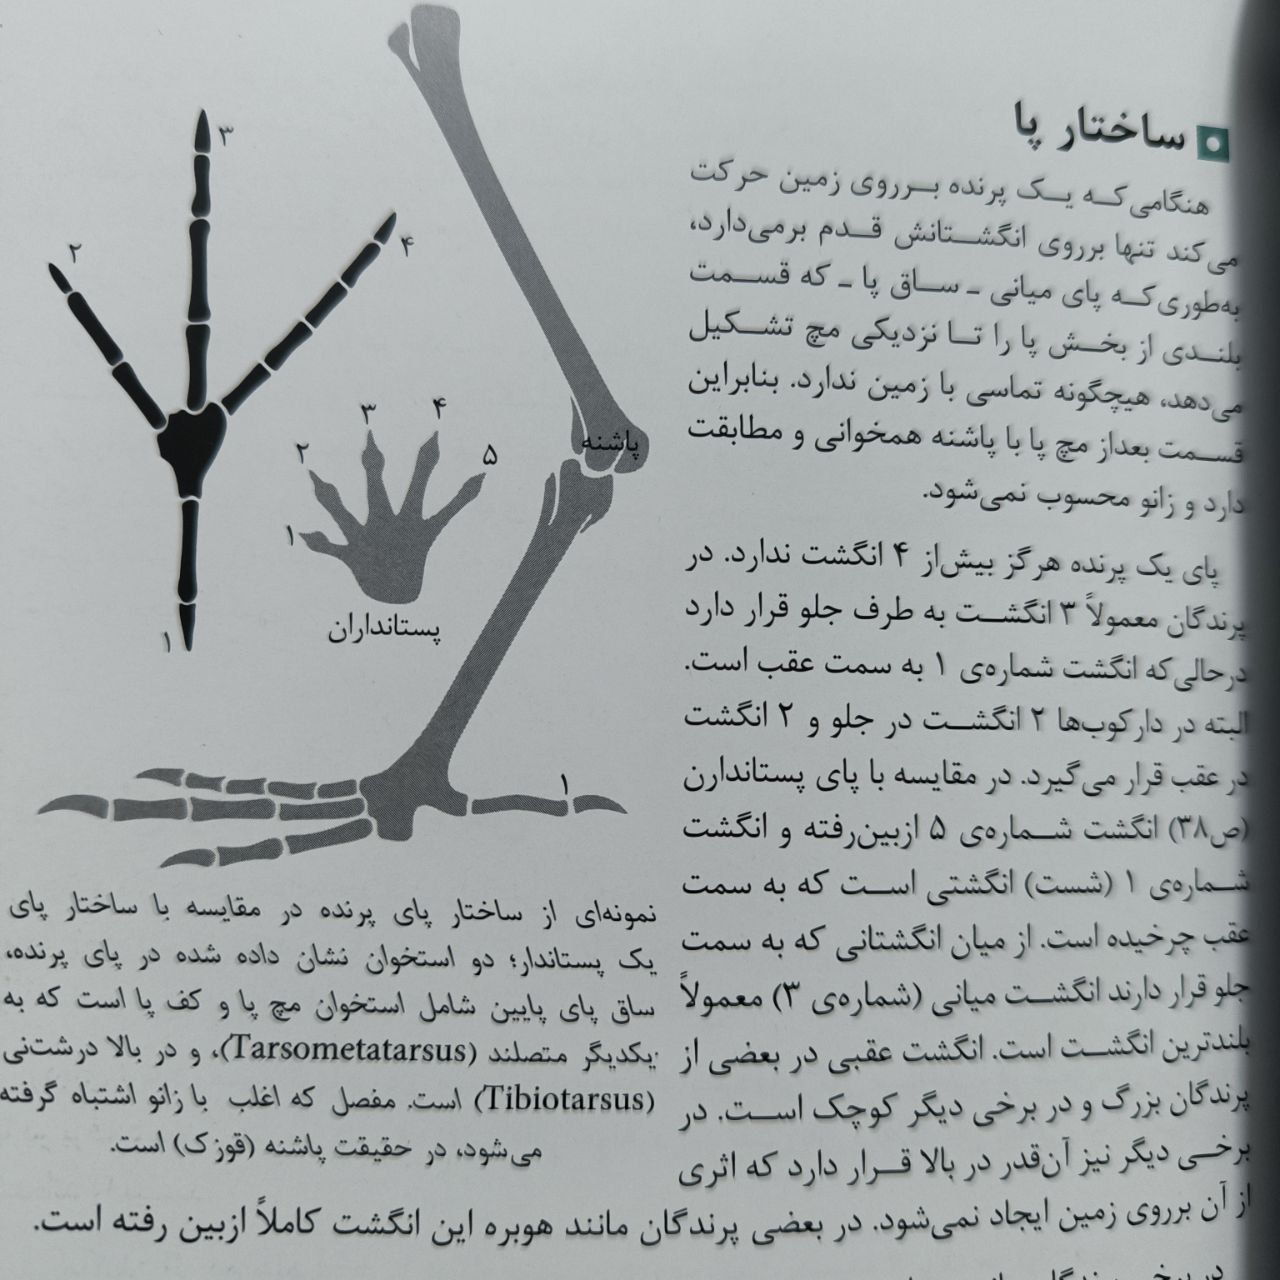 ساختار پا
هنگامی‌که یک پرنده برروی زمین حرکت
می‌کند تنها برروی انگشتانش قدم برمی‌دارد،
به‌طوری‌که پای میانی ـ ساق پا ـ که قسمت
بلندی از بخش پا را تا نزدیکی مچ تشکیل
می‌دهد، هیچگونه تماسی با زمین ندارد. بنابراین
قسمت بعداز مچ پا با پاشنه همخوانی و مطابقت
دارد و زانو محسوب نمی‌شود.
پای یک پرنده هرگز بیش‌از ۴ انگشت ندارد. در
پرندگان معمولاً ۳ انگشت به طرف جلو قرار دارد
درحالی‌که انگشت شماره‌ی ۱ به سمت عقب است.
البته در دارکوب‌ها ۲ انگشت در جلو و ۲ انگشت
در عقب قرار می‌گیرد. در مقایسه با پای پستاندارن
(ص۳۸) انگشت شماره‌ی ۵ ازبین‌رفته و انگشت
شماره‌ی ۱ (شست) انگشتی است که به سمت
عقب چرخیده است. از میان انگشتانی که به سمت
جلو قرار دارند انگشت میانی (شماره‌ی ۳) معمولاً
بلندترین انگشت است. انگشت عقبی در بعضی از
پرندگان بزرگ و در برخی دیگر کوچک است. در
برخی دیگر نیز آن‌قدر در بالا قرار دارد که اثری
از آن برروی زمین ایجاد نمی‌شود. در بعضی پرندگان مانند هوبره این انگشت کاملاً ازبین رفته است.
۳
۲
۴
۱
۳
۴
۲
۵
۱
پستانداران
پاشنه
۱
نمونه‌ای از ساختار پای پرنده در مقایسه با ساختار پای
یک پستاندار؛ دو استخوان نشان داده شده در پای پرنده،
ساق پای پایین شامل استخوان مچ پا و کف پا است که به
یکدیگر متصلند (Tarsometatarsus)، و در بالا درشت‌نی
(Tibiotarsus) است. مفصل که اغلب با زانو اشتباه گرفته
می‌شود، در حقیقت پاشنه (قوزک) است.